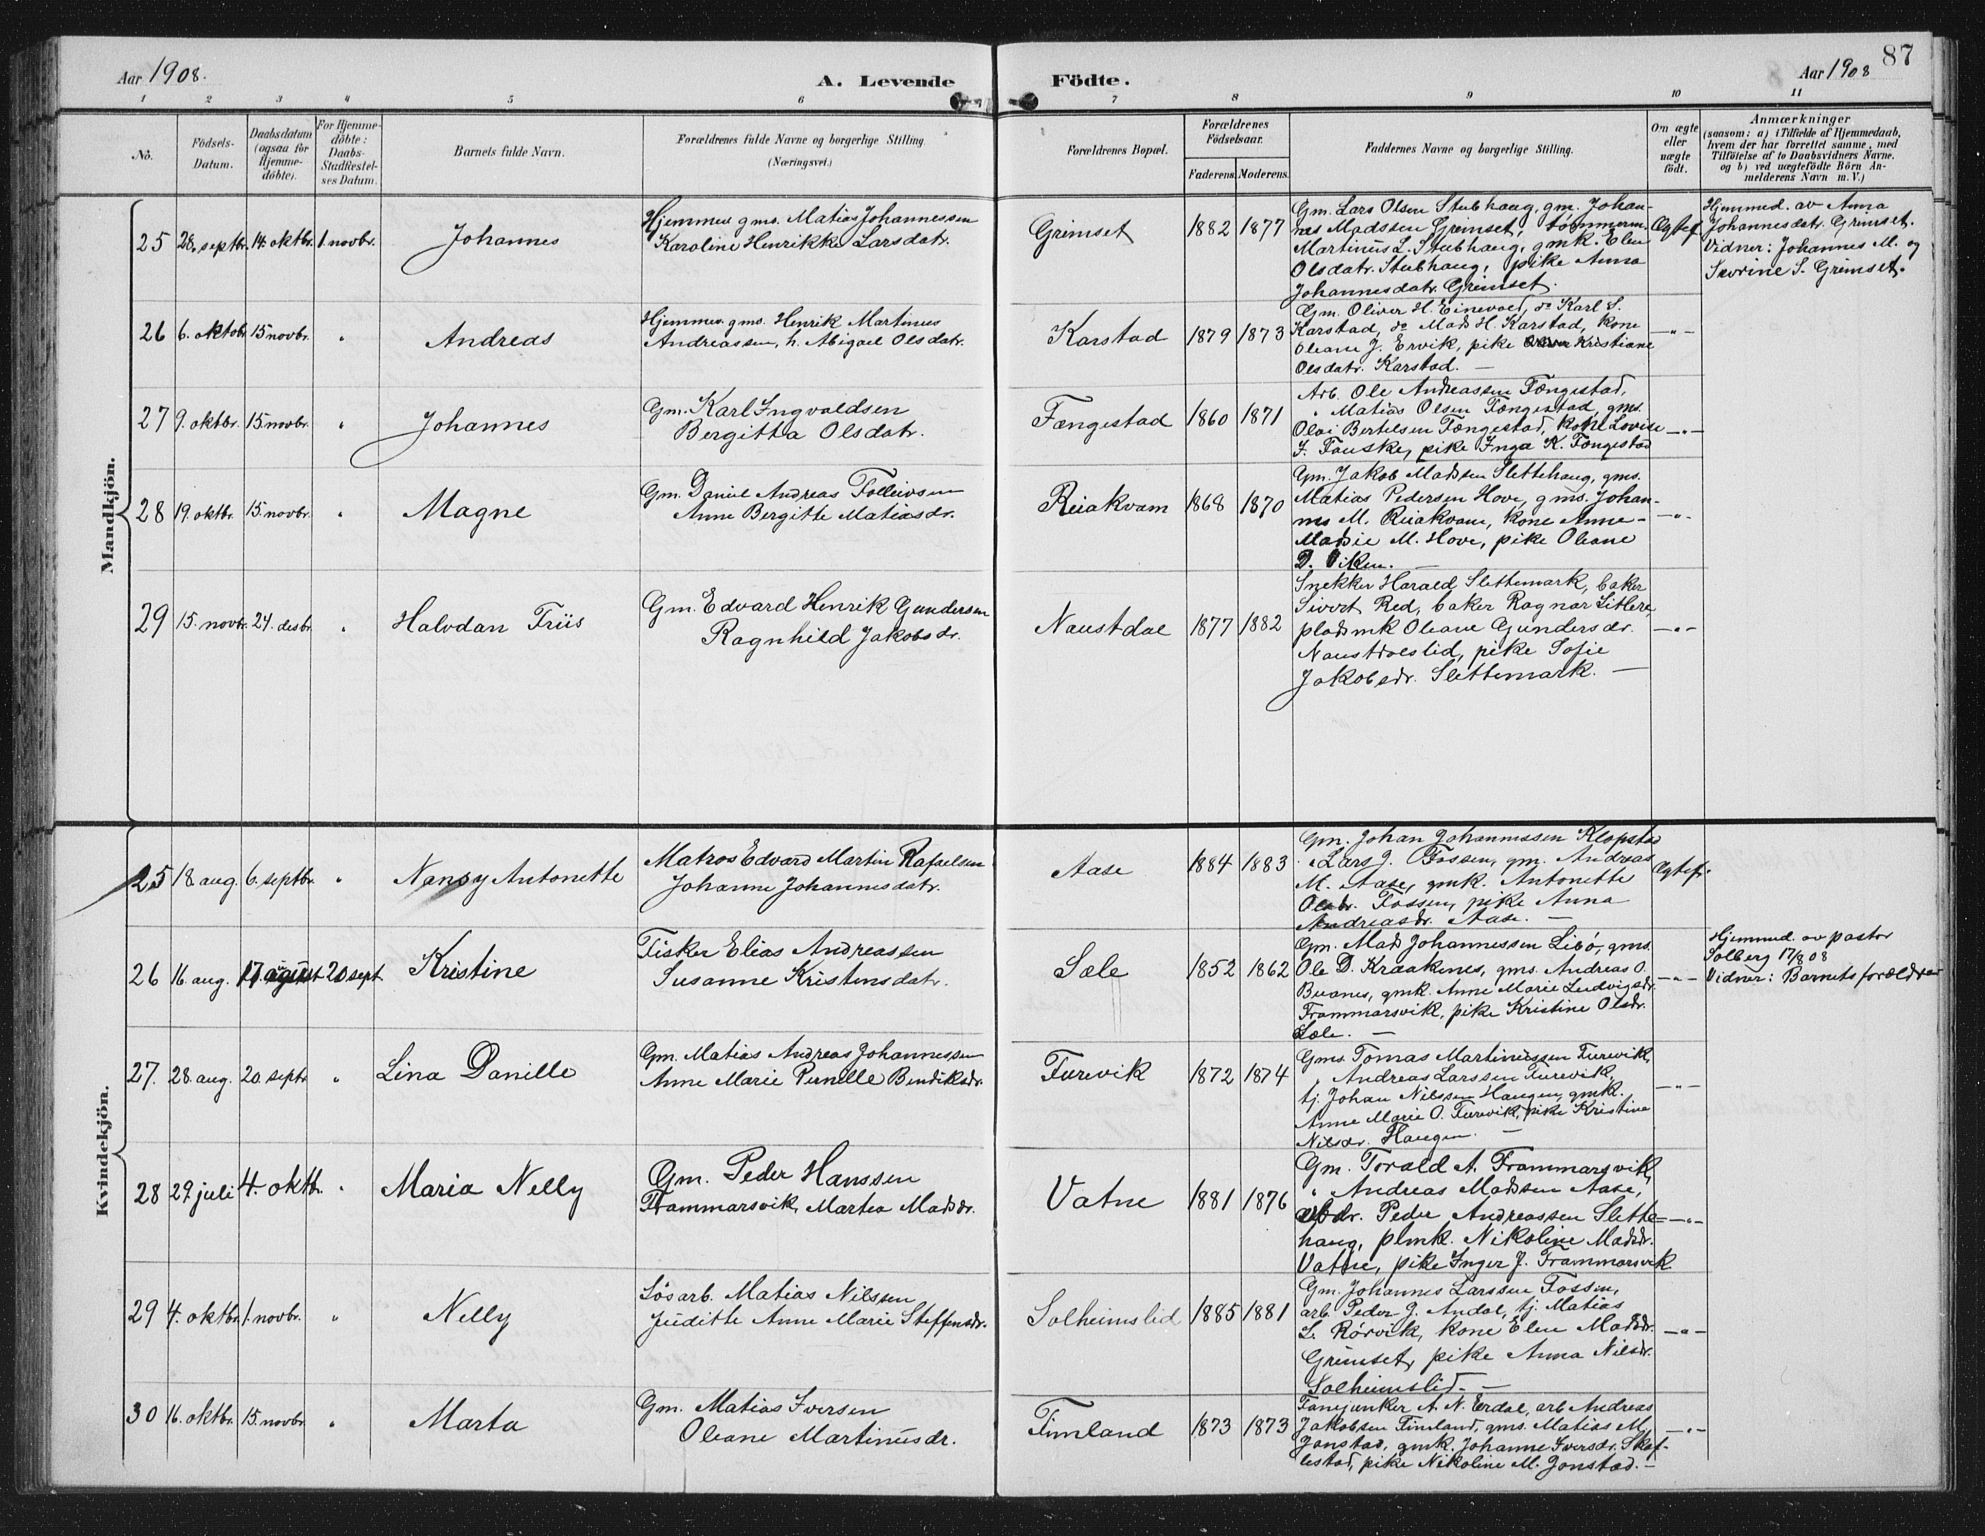 Aar 1908.
A. Levende Födte.
Aar 1908
87
1 2 3 4 5 6 7 8 9 10 11
No.
Födsels-
Datum.
Daabsdatum
(ogsaa for
Hjemme-
döbte).
For Hjemme-
döbte:
Daabs-
Stadfestel-
ses Datum.
Barnets fulde Navn.
Forældrenes fulde Navne og borgerlige Stilling.
(Næringsvei.)
Forældrenes Bopæl.
Forældrenes
Födselsaar.
Faderens. Moderens.
Faddernes Navne og borgerlige Stilling.
Om ægte
eller
uægte
födt.
Anmærkninger
(saasom: a) i Tilfælde af Hjemmedaab,
hvem der har forrettet samme, med
Tilföielse af to Daabsvidners Navne.
og b) ved uægtefödte Börn An-
melderens Navn m. V.)
Mandkjön.
25 28. septbr. 14. oktbr. 1. novbr. Johannes
Hjemmev. gms. Matias Johannessen
Karoline Henrikke Larsdatr.
Grimset 1882 1877
Gm. Lars Olsen Stubhaug, gm. Johan-
nes Madssen Grimset, tömmerm.
Martinus L. Stubhaug, gmk. Elen
Olsdatr. Stubhaug, pike Anna
Johannesdatr. Grimset.
Ægtef.
Hjemmed. av Anna
Johannesdatr. Grimset.
Vidner: Johannes M. og
Severine S. Grimset.
26 6. oktobr. 15 novbr. " Andreas
Hjemmev. gms. Henrik Martinus
Andreassen, h. Abigael Olsdatr.
Karstad 1879 1873
Gm. Oliver H. Einevoed, do Karl S.
Karstad, do Mads H. Karstad, kone
Oleane J. Ervik, pike Kristiane
Olsdatr. Karstad. —
—"—
27 9. oktbr. 15. novbr. " Johannes
Gm. Karl Ingvaldsen
Bergitta Olsdatr.
Fængestad 1860 1871
Arb. Ole Andreassen Fængestad,
" Matias Olsen Fængestad, gms.
Olai Bertelsen Fængestad, kone Lovise
J. Fauske, pike Inga K. Fængestad
—"—
28 19. oktbr. 15. novbr. " Magne
Gm. Daniel Andreas Folleivsen
Anne Bergitte Matiasdr.
Reiakvam 1868 1870
Gm. Jakob Madssen Slettehaug, gms.
Matias Pedersen Hove, gms. Johan-
nes M. Reiakvam, kone Anne-
Madsie M. Hove, pike Oleane
D. Viken. —
—"—
29 15. novbr. 27. desbr. " Halvdan Friis
Gm. Edvard Henrik Gundersen
Ragnhild Jakobsdr.
Naustdal 1877 1882
Snekker Harald Slettemark, baker
Sivert Red, baker Ragnar Litlere,
pladsmk Oleane Gundersdr.
Naustdalslid, pike Sofie
Jakobsdr. Slettemark. —
—"—
Kvindekjön.
25 18 aug. 6. septbr. " Nancy Antonette
Matros Edvard Martin Rafaelsen
Johanne Johannesdatr.
Aase 1884 1883
Gm. Johan Johannessen Klopstad
" Lars J. Fossen, gm. Andreas
M. Aase, gmk. Antonette
Olsdr. Fossen, pike Anna
Andreasdr. Aase. —
Ægtef.
26 16 aug. 17 august 20 sept Kristine
Fisker Elias Andreassen
Susanne Kristensdatr.
Sæle 1852 1862
Gm. Mads Johannessen Lisö, gms.
Ole D. Kraakenes, gms. Andreas O.
Buanes, gmk. Anne Marie Ludvigsdr.
Frammarsvik, pike Kristine Olsdr.
Sæle. —
—"—
Hjemmed. av pastor
Solberg 17/8 08
Vidner: Barnets forældrer
27. 28. aug. 20. septr " Lina Danille
Gm. Matias Andreas Johannessen
Anne Marie Pernille Bendiksdr.
Furevik 1872 1874
Gms. Tomas Martinussen Furevik,
" Andreas Larssen Furevik,
tj. Johan Nilssen Haugen, gmk.
Anne Marie O. Furevik, pike Kristine
Nilsdr. Haugen. —
—"—
28 29. juli 4. oktbr. " Maria Nelly
Gm. Peder Hanssen
Frammarsvik, Martea Madsdr.
Vatne 1881 1876
Gm. Torald A. Frammarsvik,
" Andreas Madssen Aase,
arbdr. Peder Andreassen Slette-
haug, plmk. Nikoline Madsdr.
Vatne, pike Inger J. Frammarsvik
—"—
29 4. oktbr. 1. novbr. " Nelly
Lösarb. Matias Nilssen
Juditte Anne Marie Steffensdr.
Solheimslid 1885 1881
Gm. Johannes Larssen Fossen,
arb. Peder J. Andal, tj. Matias
L. Rörvik, kone Elen Madsdr.
Grimset, pike Anna Nilsdr.
Solheimslid. —
—"—
30 16. oktbr. 15. novbr. " Marta
Gm. Matias Iversen
Oleane Martinusdr.
Timland 1873 1873
Fanejunker A. N. Erdal, arb Andreas
Jakobsen Timland, gms. Matias M.
Jonstad, gmk. Johanne Iversdr. Skaf-
lestad, pike Nikoline M. Jonstad. —
—"—